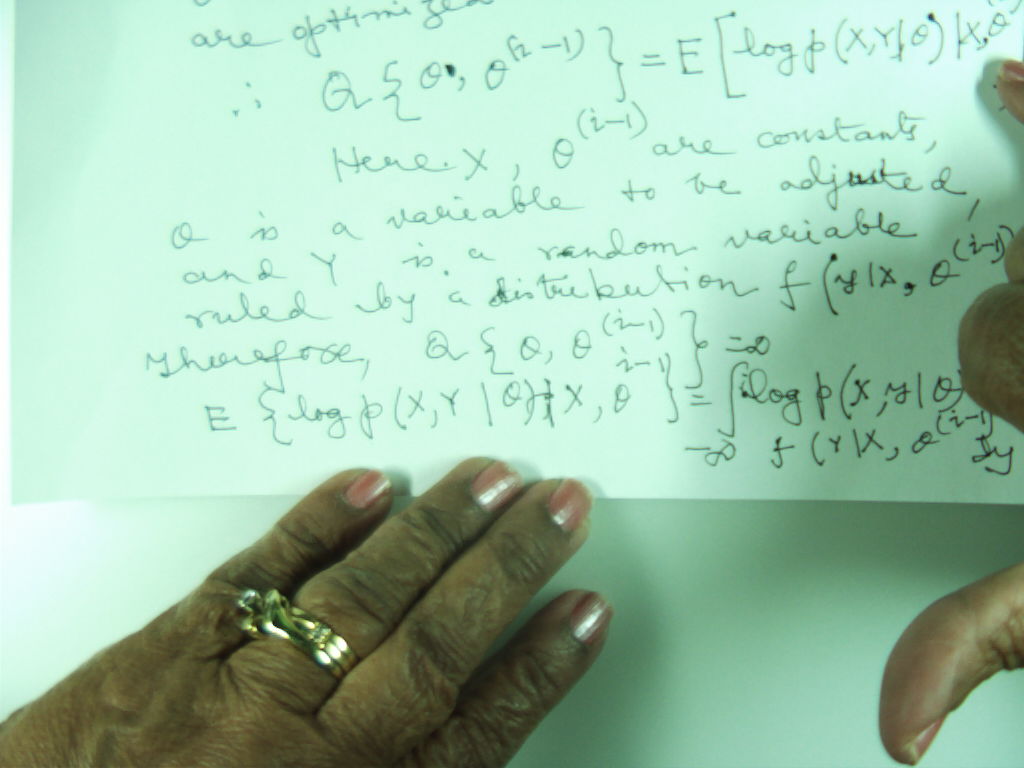 are optimized
∴ Q { θ, θ^(i-1) } = E [ log p (X,Y|θ) | X, θ
Here X, θ^(i-1) are constants,
θ is a variable to be adjusted,
and Y is a random variable
ruled by a distribution f (y|X, θ^(i-1))
Therefore, Q { θ, θ^(i-1) } =∞
E { log p (X,Y|θ) | X, θ^i-1 } = ∫ log p (X, y|θ)
-∞ f (Y|X, θ^(i-1) dy